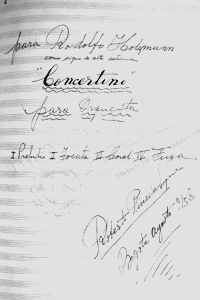 para Rodolfo Holzmann
como signo de alta estima
"Concertino"
para Orquesta
I Preludio II Tocata III Coral IV Fuga
Roberto Pineda
Bogotá agosto